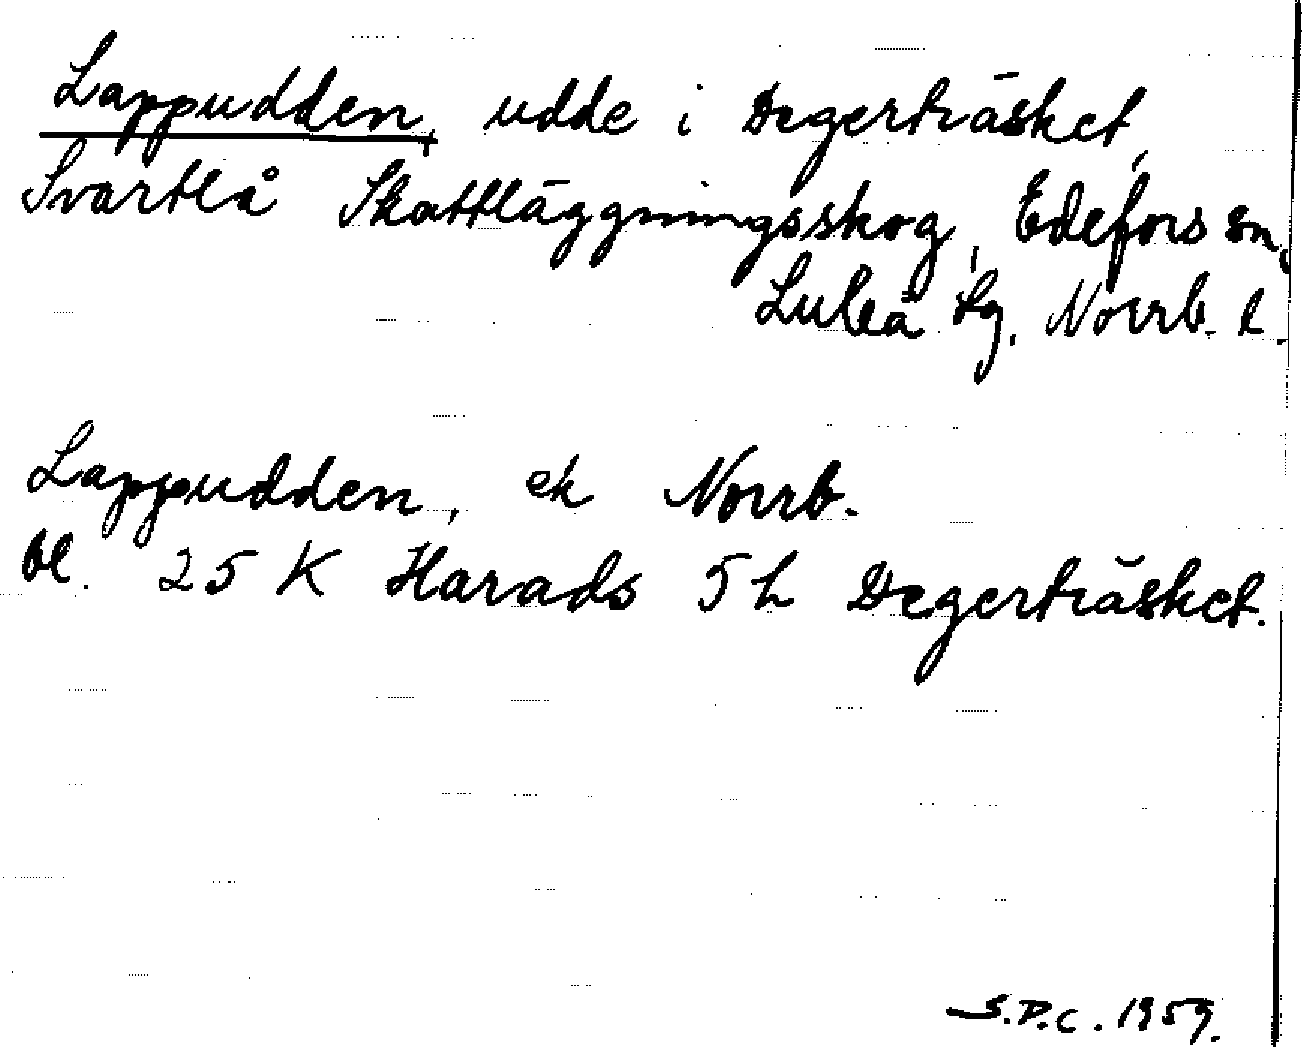 Lappudden, udde i Degerträsket,
Svartlå Skattläggningsskog, Edefors sn,
Luleå tg, Norrb. l.
Lappudden, ek Norrb.
bl. 25 K Harads 5 h Degerträsket.
S.P.C. 1959.